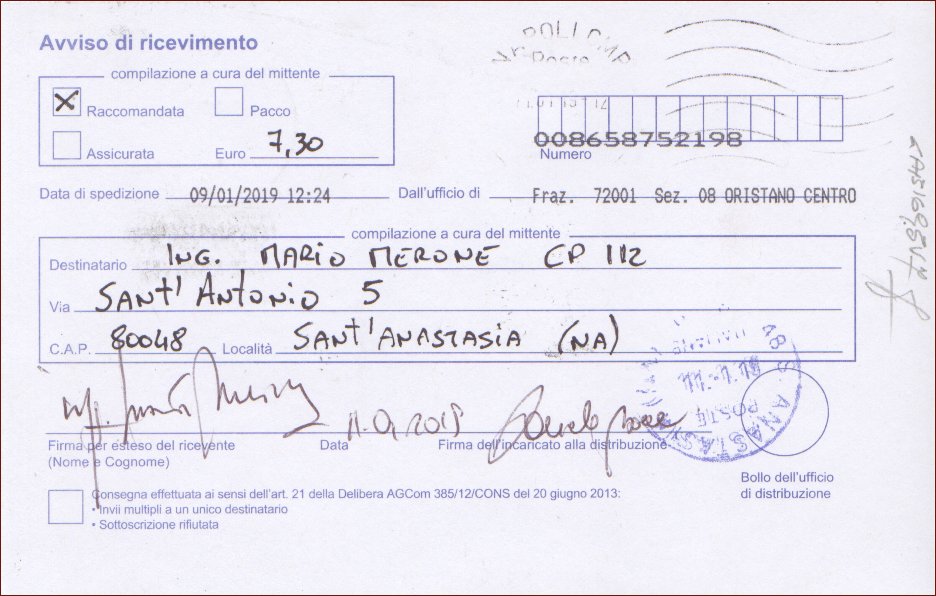 Avviso di ricevimento
compilazione a cura del mittente
X Raccomandata Pacco
Assicurata Euro 7,30
008658752198
Numero
Data di spedizione 09/01/2019 12:24 Dall'ufficio di Fraz. 72001 Sez. 08 ORISTANO CENTRO
compilazione a cura del mittente
Destinatario ING. MARIO MERONE CP 112
Via SANT'ANTONIO 5
C.A.P. 80048 Località SANT'ANASTASIA (NA)
Firma per esteso del ricevente
(Nome e Cognome)
Data
Firma dell'incaricato alla distribuzione
POSTE
S. ANASTASIA
Bollo dell'ufficio
di distribuzione
Consegna effettuata ai sensi dell'art. 21 della Delibera AGCom 385/12/CONS del 20 giugno 2013:
• Invii multipli a un unico destinatario
• Sottoscrizione rifiutata